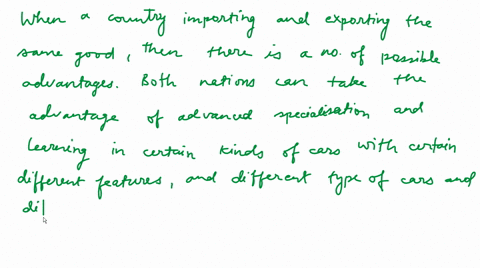 When a country importing and exporting the
same good, then there is a no. of possible
advantages. Both nations can take the
advantage of advanced specialisation and
learning in certain kinds of cars with certain
different features, and different type of cars and
dil